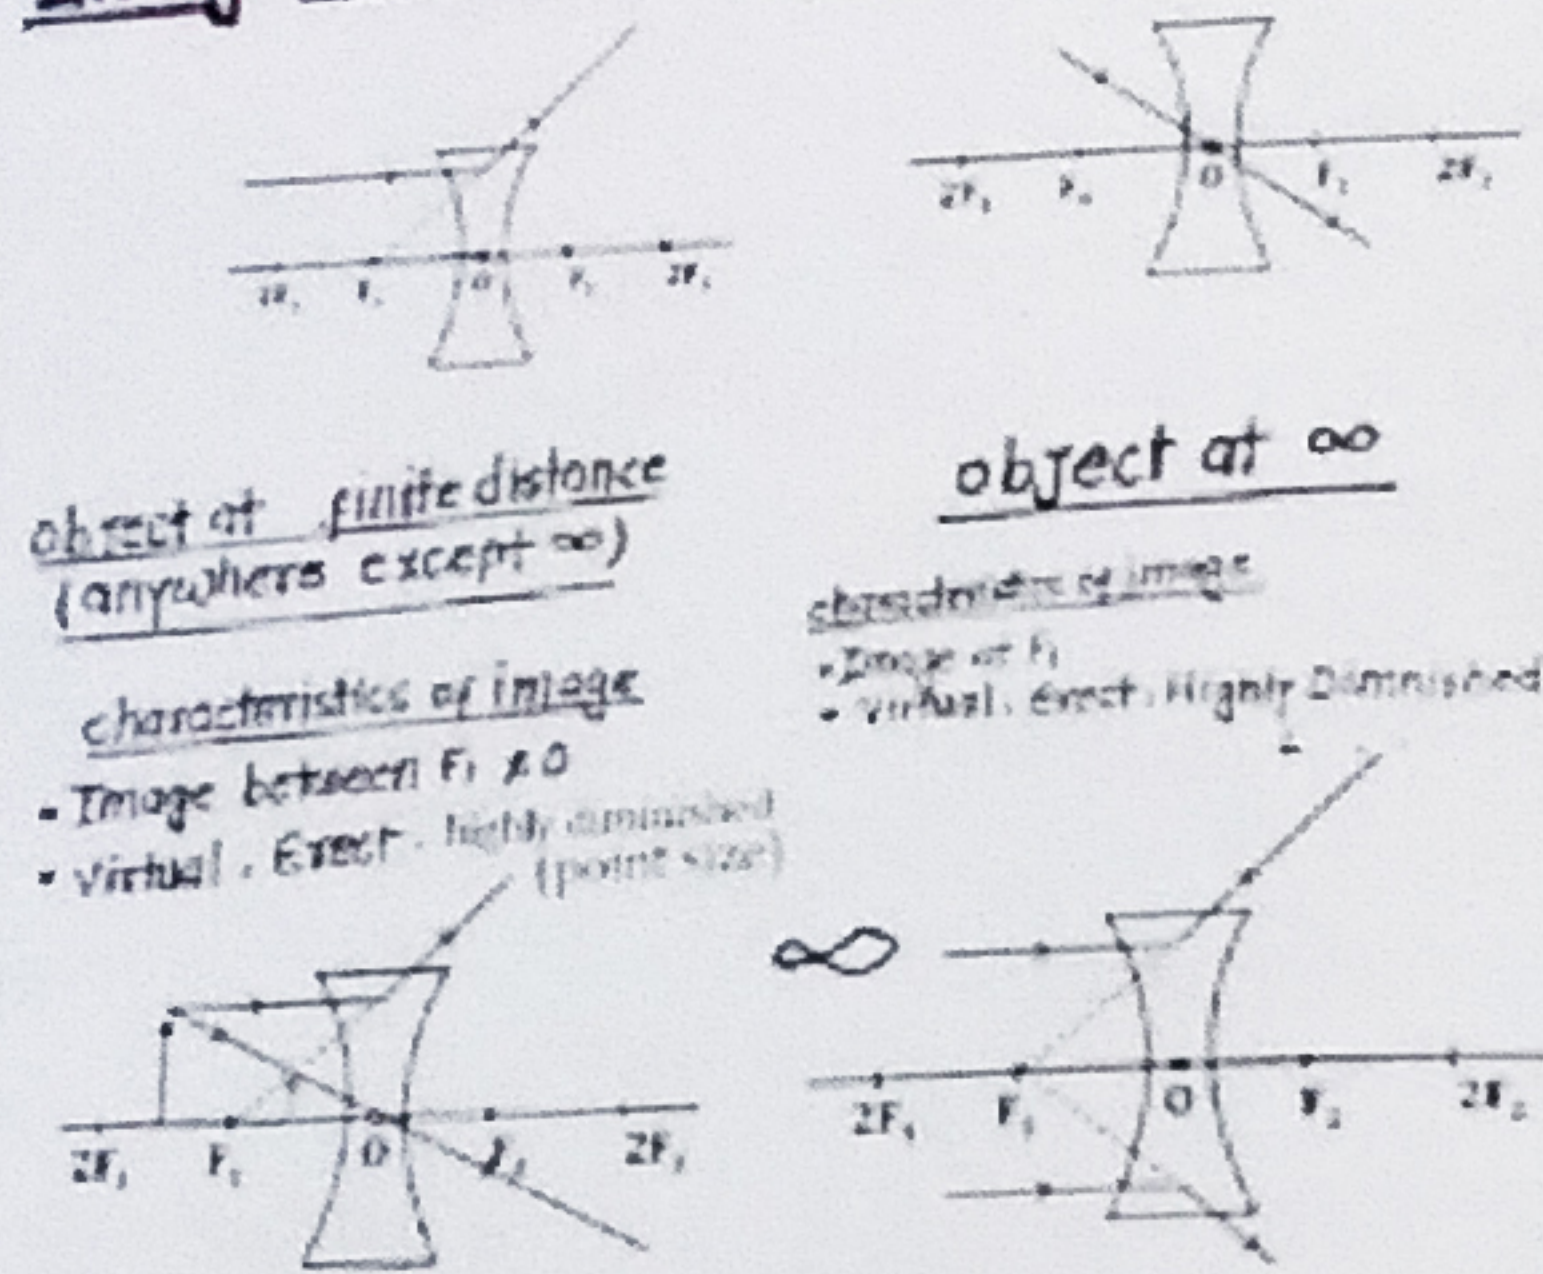 2F₁ F₁ O F₂ 2F₂
2F₁ F₁ O F₂ 2F₂
object at finite distance
(anywhers except ∞)
characteristics of image
- Image between F₁ & O
• Virtual, Erect, highly diminished
(point size)
object at ∞
characteristics of image
• Image at F₁
• Virtual, Erect, Highly Diminished
2F₁ F₁ O F₂ 2F₂
∞
2F₁ F₁ O F₂ 2F₂